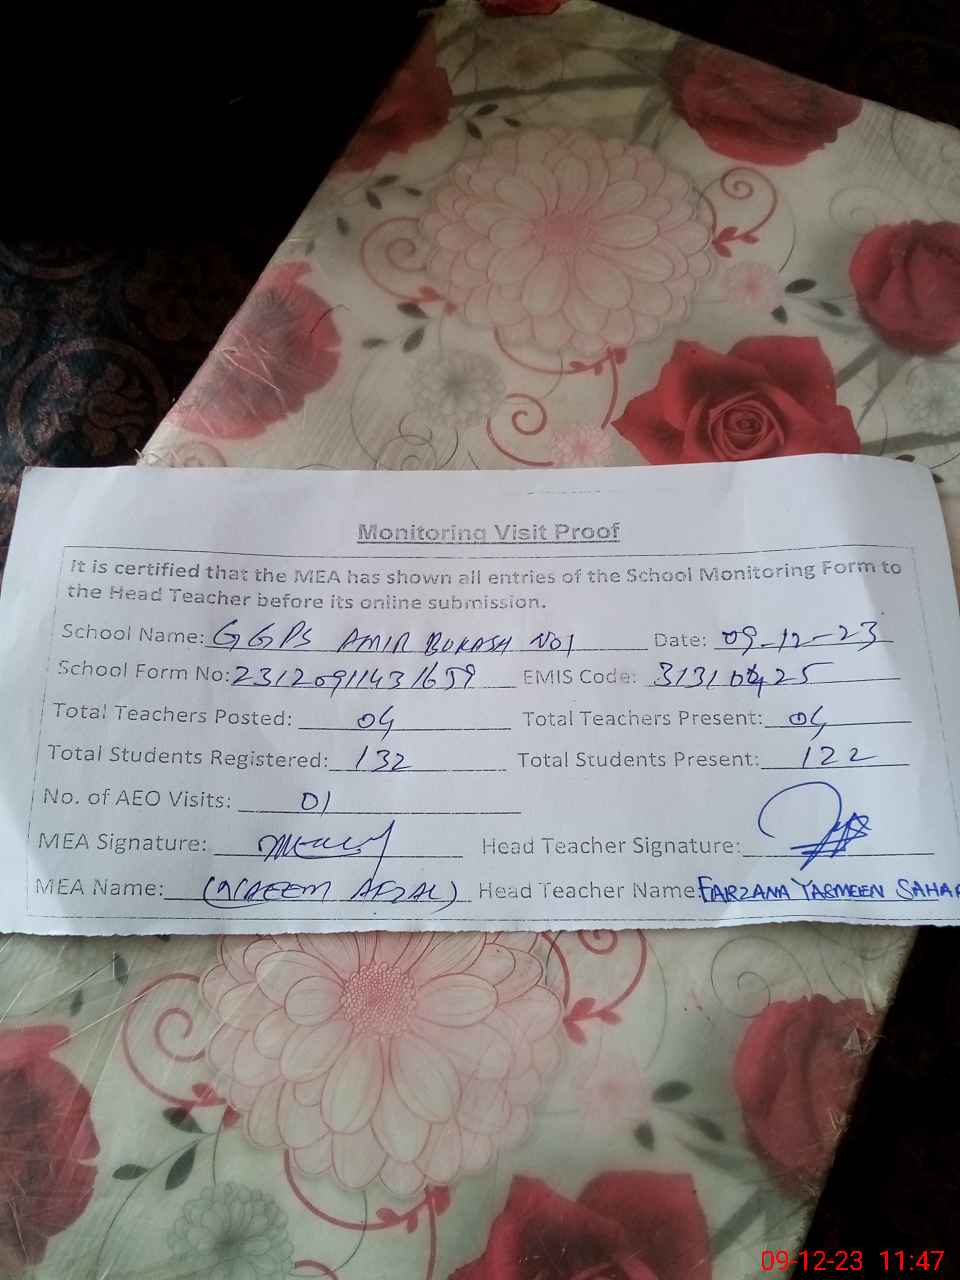 Monitoring Visit Proof
It is certified that the MEA has shown all entries of the School Monitoring Form to
the Head Teacher before its online submission.
School Name: GGPS AMIR BUKASH NO1 Date: 09-12-23
School Form No: 23120911431659 EMIS Code: 31310425
Total Teachers Posted: 04 Total Teachers Present: 04
Total Students Registered: 132 Total Students Present: 122
No. of AEO Visits: 01
MEA Signature: Head Teacher Signature:
MEA Name: (NAEEM AFZAL) Head Teacher Name: FARZANA YASMEEN SAHAR
09-12-23 11:47